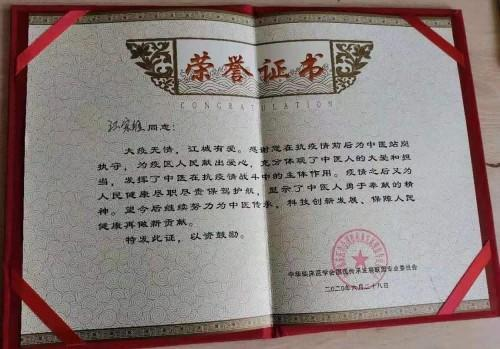 荣誉证书
CONGRATULATION
同志:
大疫无情,江城有爱。感谢您在抗疫情前后为中医站岗
执守,为疫区人民献出爱心,充分体现了中医人的大爱和担
当,发挥了中医在抗疫情战斗中的主体作用。疫情之后又为
人民健康尽职尽责保驾护航,显示了中医人勇于奉献的精
神。望今后继续努力为中医传承,科技创新发展,保障人民
健康再做新贡献。
特发此证,以资鼓励。
专业委员会
二〇二〇年六月二十八日